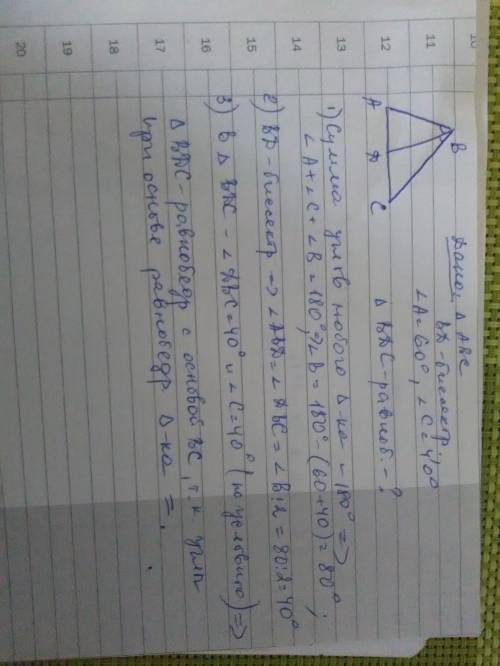 Дано: Δ ABC
BD - биссектр.
∠A=60°, ∠C=40°
Δ BDC - равноб. - ?
B
A D C
1) Сумма углов любого Δ-ка - 180° =>
∠A+∠C+∠B=180° => ∠B=180°-(60+40)=80°;
2) BD - биссектр => ∠ABD=∠DBC=∠B:2=80:2=40°
3) В Δ BDC - ∠DBC=40° и ∠C=40° (по условию) =>
Δ BDC - равнобедр с основой BC, т.к. углы
при основе равнобедр Δ-ка =.
11
12
13
14
15
16
17
18
19
20